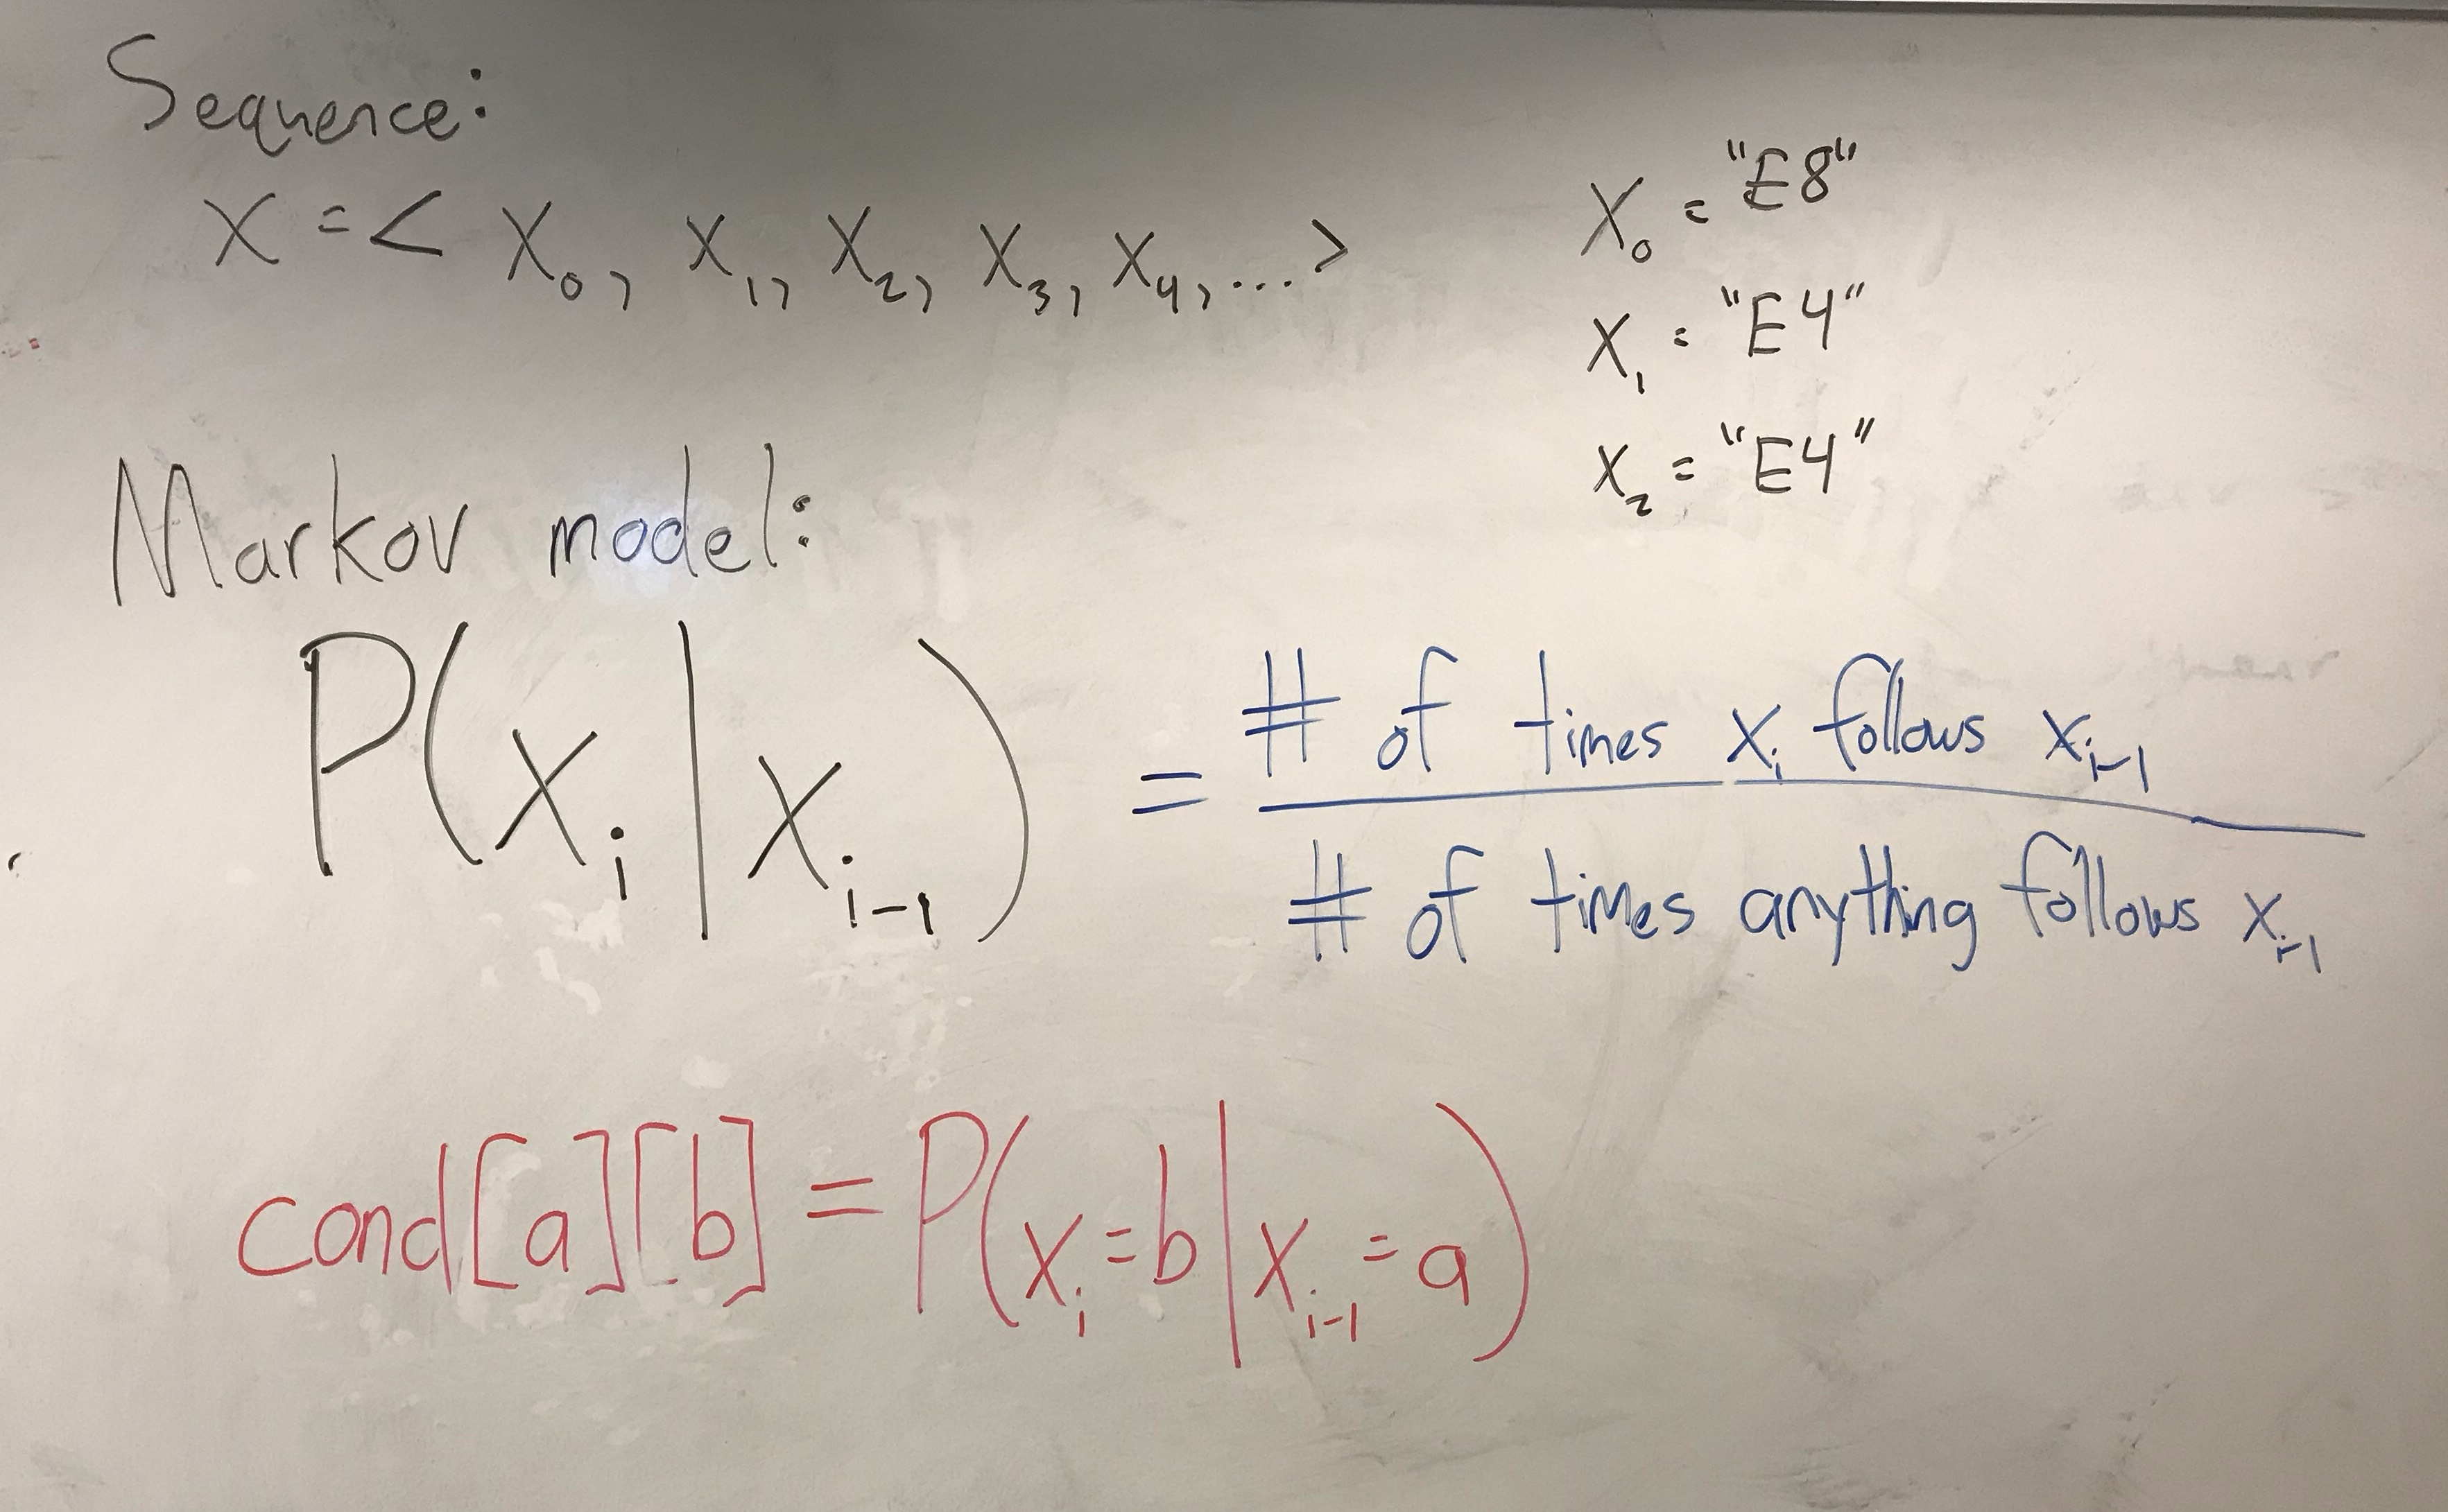 Sequence:
X = < X₀, X₁, X₂, X₃, X₄, ... >
X₀ = "E8"
X₁ = "E4"
X₂ = "E4"
Markov model:
P(Xᵢ | Xᵢ₋₁) = # of times Xᵢ follows Xᵢ₋₁
# of times anything follows Xᵢ₋₁
cond[a][b] = P(Xᵢ=b | Xᵢ₋₁=a)